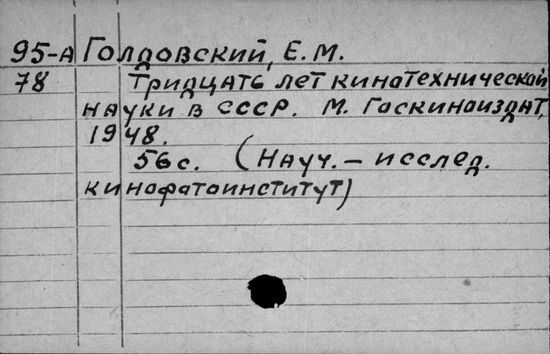 95-А Голдовский, Е.М.
78 Тридцать лет кинотехнической
науки в СССР. М. Госкиноиздат,
1948.
56 с. (Науч. – исслед.
кинофотоинститут)